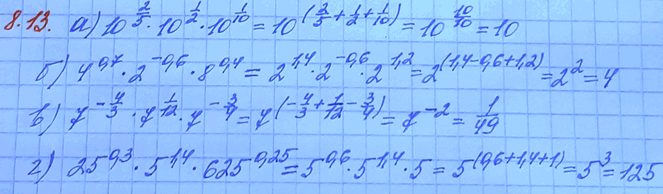 8.13. а) 10^(2/5) · 10^(1/2) · 10^(1/10) = 10^(2/5 + 1/2 + 1/10) = 10^(10/10) = 10
б) 4^0,7 · 2^-0,6 · 8^0,4 = 2^1,4 · 2^-0,6 · 2^1,2 = 2^(1,4-0,6+1,2) = 2^2 = 4
в) 7^(-4/3) · 7^(1/12) · 7^(-3/4) = 7^(-4/3 + 1/12 - 3/4) = 7^-2 = 1/49
г) 25^0,3 · 5^1,4 · 625^0,25 = 5^0,6 · 5^1,4 · 5 = 5^(0,6+1,4+1) = 5^3 = 125